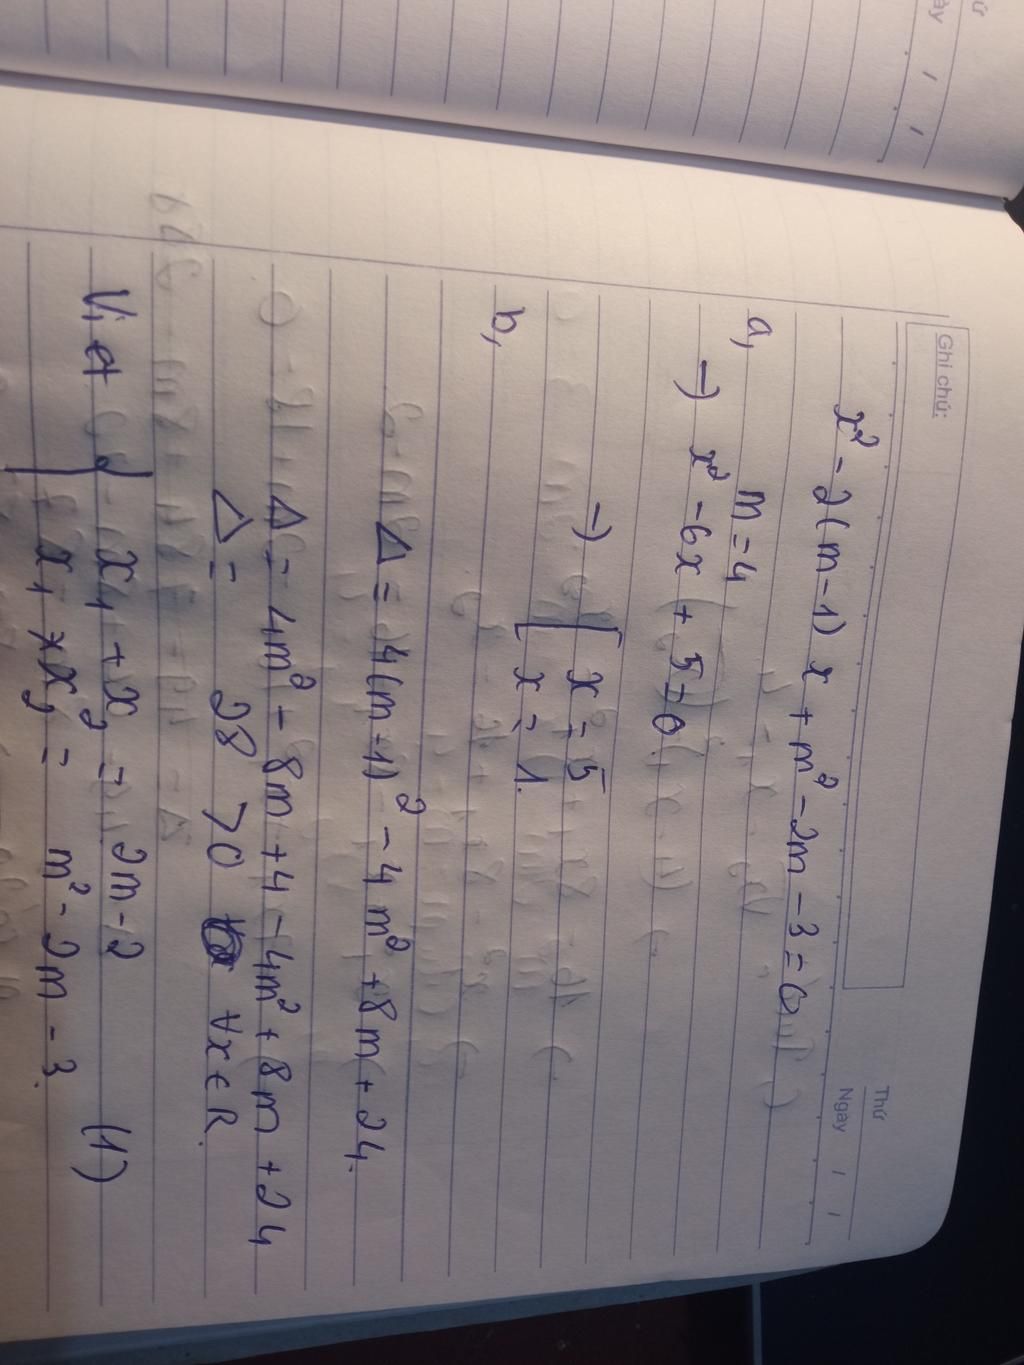 Ghi chú:
Thứ
Ngày / /
x² - 2(m-1)x + m² - 2m - 3 = 0
a, m = 4
→ x² - 6x + 5 = 0
→ [ x = 5
x = 1.
b,
Δ = 4(m-1)² - 4m² + 8m + 24.
Δ = 4m² - 8m + 4 - 4m² + 8m + 24
Δ = 28 > 0 ∀x ∈ R.
Vi et { x₁ + x₂ = 2m - 2 (1)
x₁ * x₂ = m² - 2m - 3.